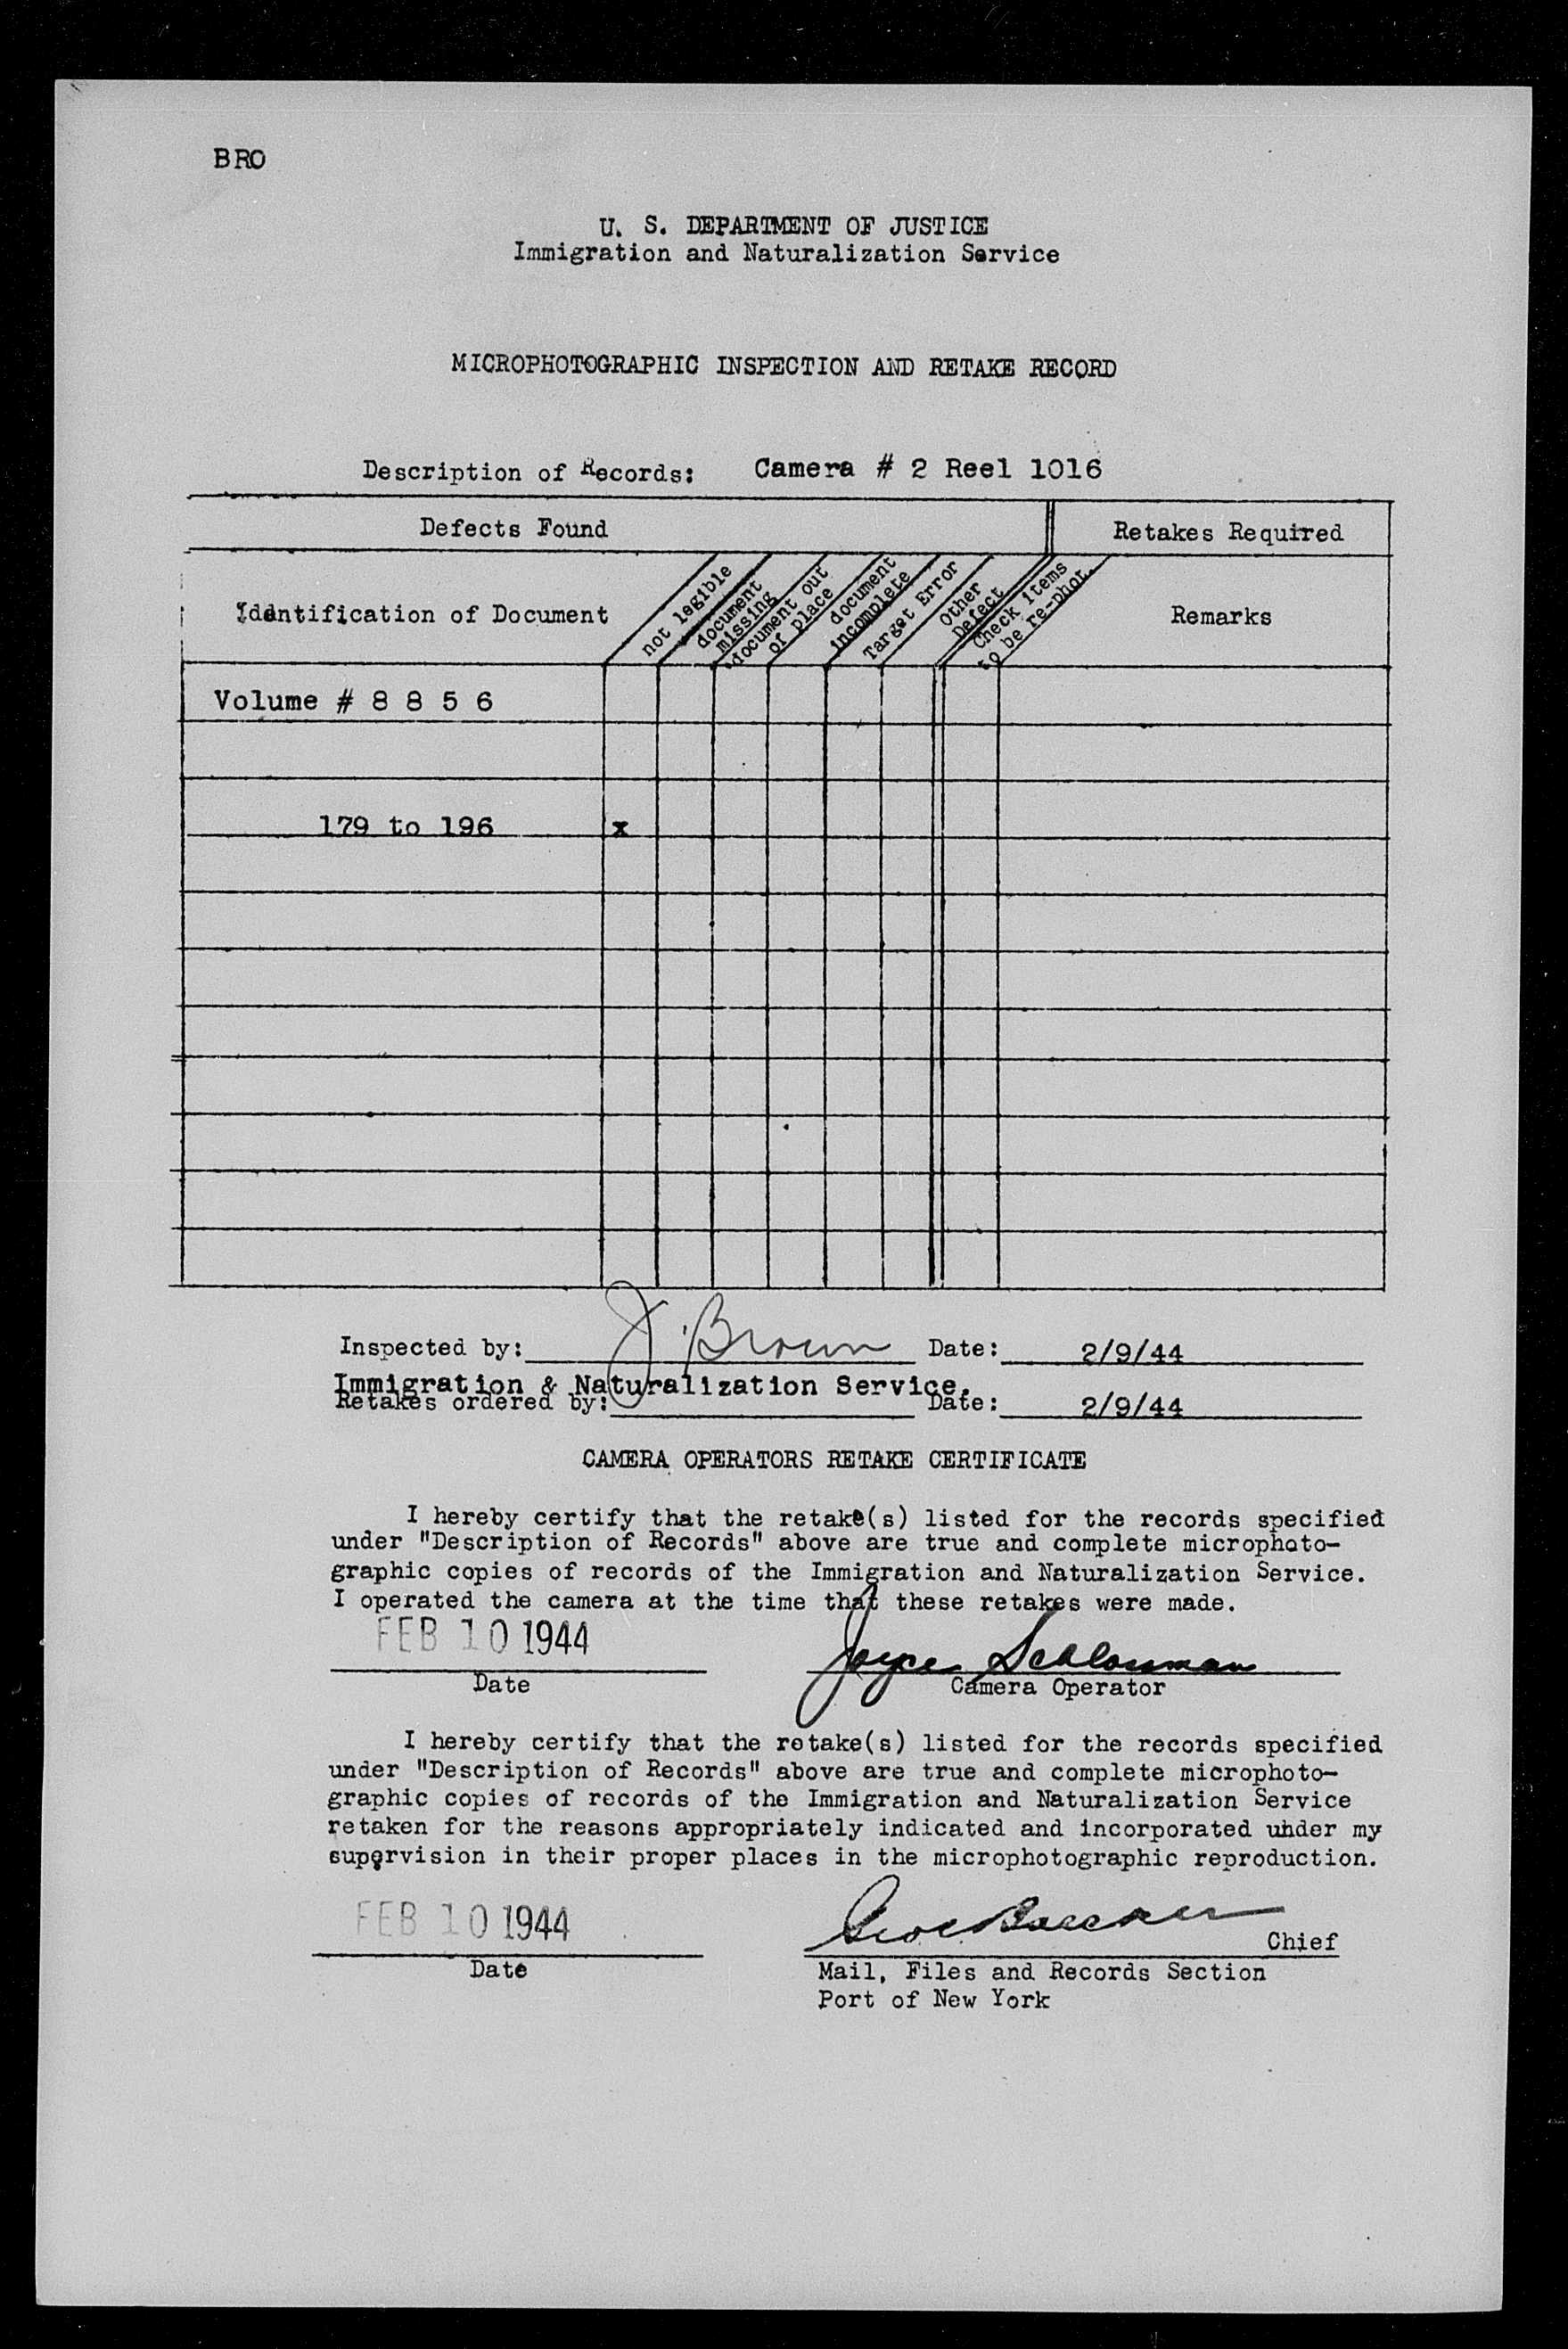 BRO
U. S. DEPARTMENT OF JUSTICE
Immigration and Naturalization Service
MICROPHOTOGRAPHIC INSPECTION AND RETAKE RECORD
Description of Records: Camera # 2 Reel 1016
Defects Found
Retakes Required
Identification of Document
not legible
document missing
document out of place
document incomplete
Target Error
Other Defect
Check items to be re-phot.
Remarks
Volume # 8 8 5 6
179 to 196 x
Inspected by: J. Brown Date: 2/9/44
Immigration & Naturalization Service.
Retakes ordered by: Date: 2/9/44
CAMERA OPERATORS RETAKE CERTIFICATE
I hereby certify that the retake(s) listed for the records specified
under "Description of Records" above are true and complete microphoto-
graphic copies of records of the Immigration and Naturalization Service.
I operated the camera at the time that these retakes were made.
FEB 10 1944
Joyce
Date
Camera Operator
I hereby certify that the retake(s) listed for the records specified
under "Description of Records" above are true and complete microphoto-
graphic copies of records of the Immigration and Naturalization Service
retaken for the reasons appropriately indicated and incorporated under my
supervision in their proper places in the microphotographic reproduction.
FEB 10 1944
Chief
Date
Mail, Files and Records Section
Port of New York